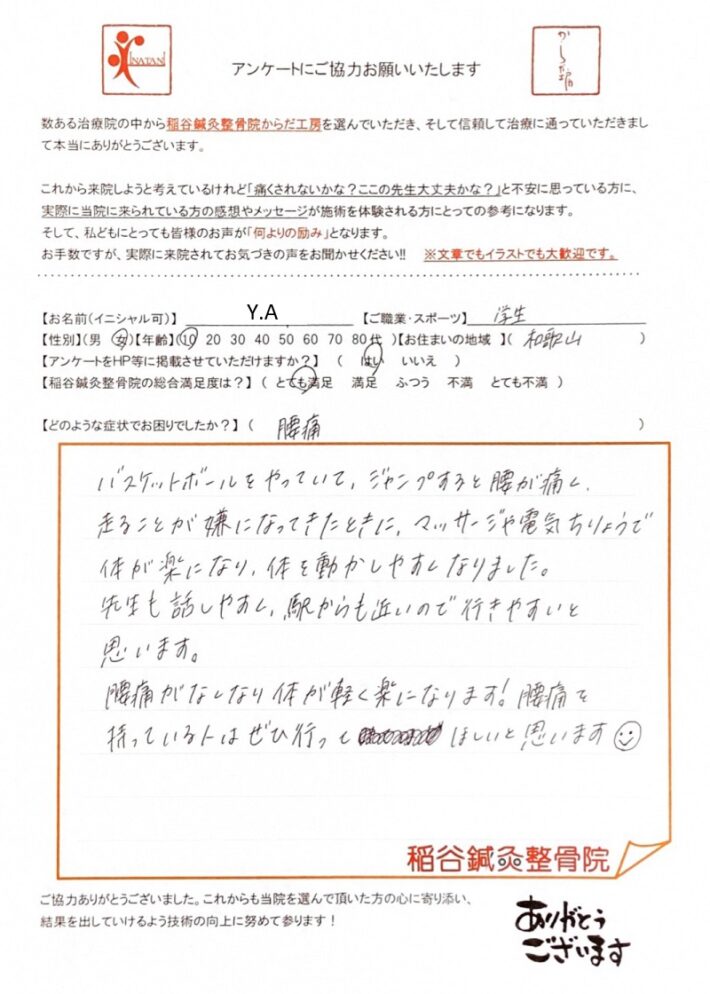 INATANI
アンケートにご協力お願いいたします
からだ工房
数ある治療院の中から稲谷鍼灸整骨院からだ工房を選んでいただき、そして信頼して治療に通っていただきまし
て本当にありがとうございます。
これから来院しようと考えているけれど「痛くされないかな？ここの先生大丈夫かな？」と不安に思っている方に、
実際に当院に来られている方の感想やメッセージが施術を体験される方にとっての参考になります。
そして、私どもにとっても皆様のお声が「何よりの励み」となります。
お手数ですが、実際に来院されてお気づきの声をお聞かせください!! ※文章でもイラストでも大歓迎です。
【お名前(イニシャル可)】 Y.A 【ご職業・スポーツ】 学生
【性別】(男 女)【年齢】(10 20 30 40 50 60 70 80代 )【お住まいの地域 】( 和歌山 )
【アンケートをHP等に掲載させていただけますか？】 ( はい いいえ )
【稲谷鍼灸整骨院の総合満足度は？】 ( とても満足 満足 ふつう 不満 とても不満 )
【どのような症状でお困りでしたか？】( 腰痛 )
バスケットボールをやっていて、ジャンプすると腰が痛く、
走ることが嫌になってきたときに、マッサージや電気ちりょうで
体が楽になり、体を動かしやすくなりました。
先生も話しやすく、駅からも近いので行きやすいと
思います。
腰痛がなくなり体が軽く楽になります!腰痛を
持っている人はぜひ行って ほしいと思います
稲谷鍼灸整骨院
ご協力ありがとうございました。これからも当院を選んで頂いた方の心に寄り添い、
結果を出していけるよう技術の向上に努めて参ります！
ありがとう
ございます